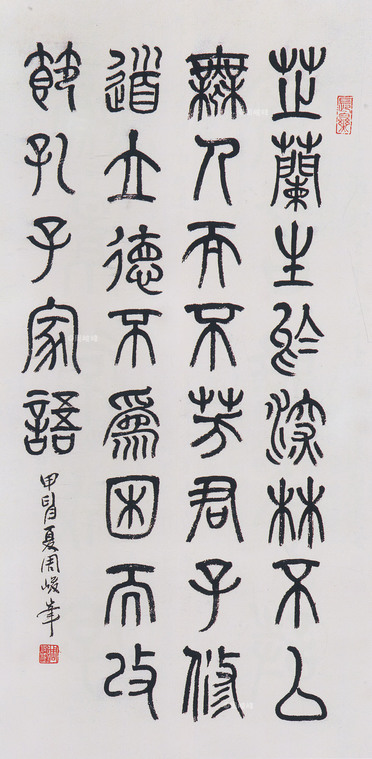 芷蘭生於深林不以
無人而不芳君子修
道立德不爲困而改
節孔子家語
甲夏周峻峯